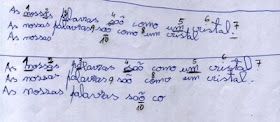 As nossas palavras são como um cristal
As nossas palavras são como um cristal
As nossas
As nossas palavras são como um cristal
As nossas palavras são como um cristal.
As nossas palavras são co